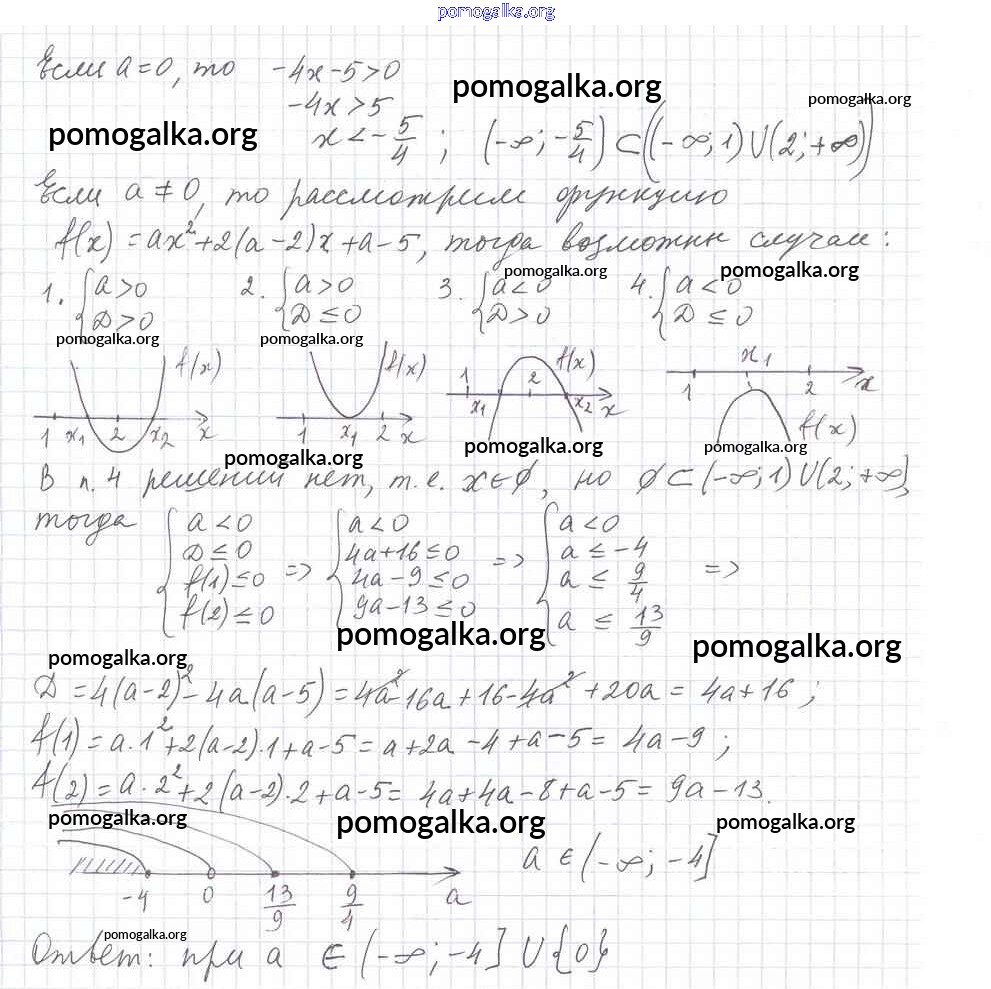 pomogalka.org
Если a = 0, то -4x - 5 > 0
pomogalka.org
pomogalka.org
-4x > 5
pomogalka.org
x < -5/4 ; (-∞; -5/4) ⊂ ((-∞; 1) ∪ (2; +∞))
Если a ≠ 0, то рассмотрим функцию
f(x) = ax² + 2(a-2)x + a - 5, тогда возможны случаи:
pomogalka.org
pomogalka.org
1. { a > 0 2. { a > 0 3. { a < 0 4. { a < 0
D > 0 D ≤ 0 D > 0 D ≤ 0
pomogalka.org
pomogalka.org
f(x) f(x) 1 2 f(x) x₁
1 x₁ 2 x₂ x 1 x₁ 2 x x₁ x₂ x 1 2 x
f(x)
pomogalka.org
pomogalka.org
pomogalka.org
В п. 4 решений нет, т.е. x ∈ ∅, но ∅ ⊂ (-∞; 1) ∪ (2; +∞),
тогда { a < 0 { a < 0 { a < 0
D ≤ 0 4a + 16 ≤ 0 a ≤ -4
f(1) ≤ 0 => 4a - 9 ≤ 0 => a ≤ 9/4 =>
f(2) ≤ 0 9a - 13 ≤ 0 a ≤ 13/9
pomogalka.org
pomogalka.org
pomogalka.org
D = 4(a-2)² - 4a(a-5) = 4a² - 16a + 16 - 4a² + 20a = 4a + 16 ;
f(1) = a·1² + 2(a-2)·1 + a - 5 = a + 2a - 4 + a - 5 = 4a - 9 ;
f(2) = a·2² + 2(a-2)·2 + a - 5 = 4a + 4a - 8 + a - 5 = 9a - 13.
pomogalka.org
pomogalka.org
pomogalka.org
a ∈ (-∞; -4]
-4 0 13/9 9/4 a
pomogalka.org
Ответ: при a ∈ (-∞; -4] ∪ {0}